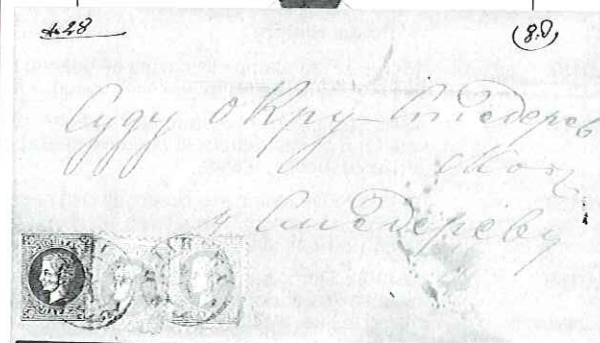 № 28
(8.)
Суду Окру-Смедерев
ском
у Смедереву